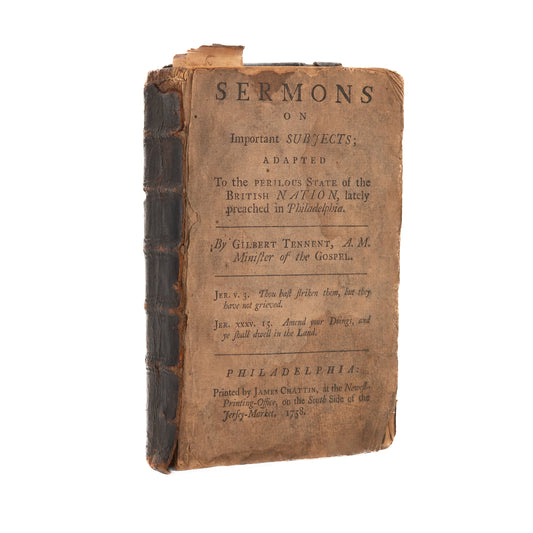 SERMONS
ON
Important SUBJECTS;
ADAPTED
To the PERILOUS STATE of the
BRITISH NATION, lately
preached in Philadelphia.
By GILBERT TENNENT, A. M.
Miniſter of the GOSPEL.
JER. V. 3. Thou haſt ſtriken them, but they
have not grieved.
JER. XXXV. 15. Amend your Doings, and
ye ſhall dwell in the Land.
PHILADELPHIA:
Printed by JAMES CHATTIN, at the Neweſt-
Printing-Office, on the South Side of the
Jerſey-Market, 1758.